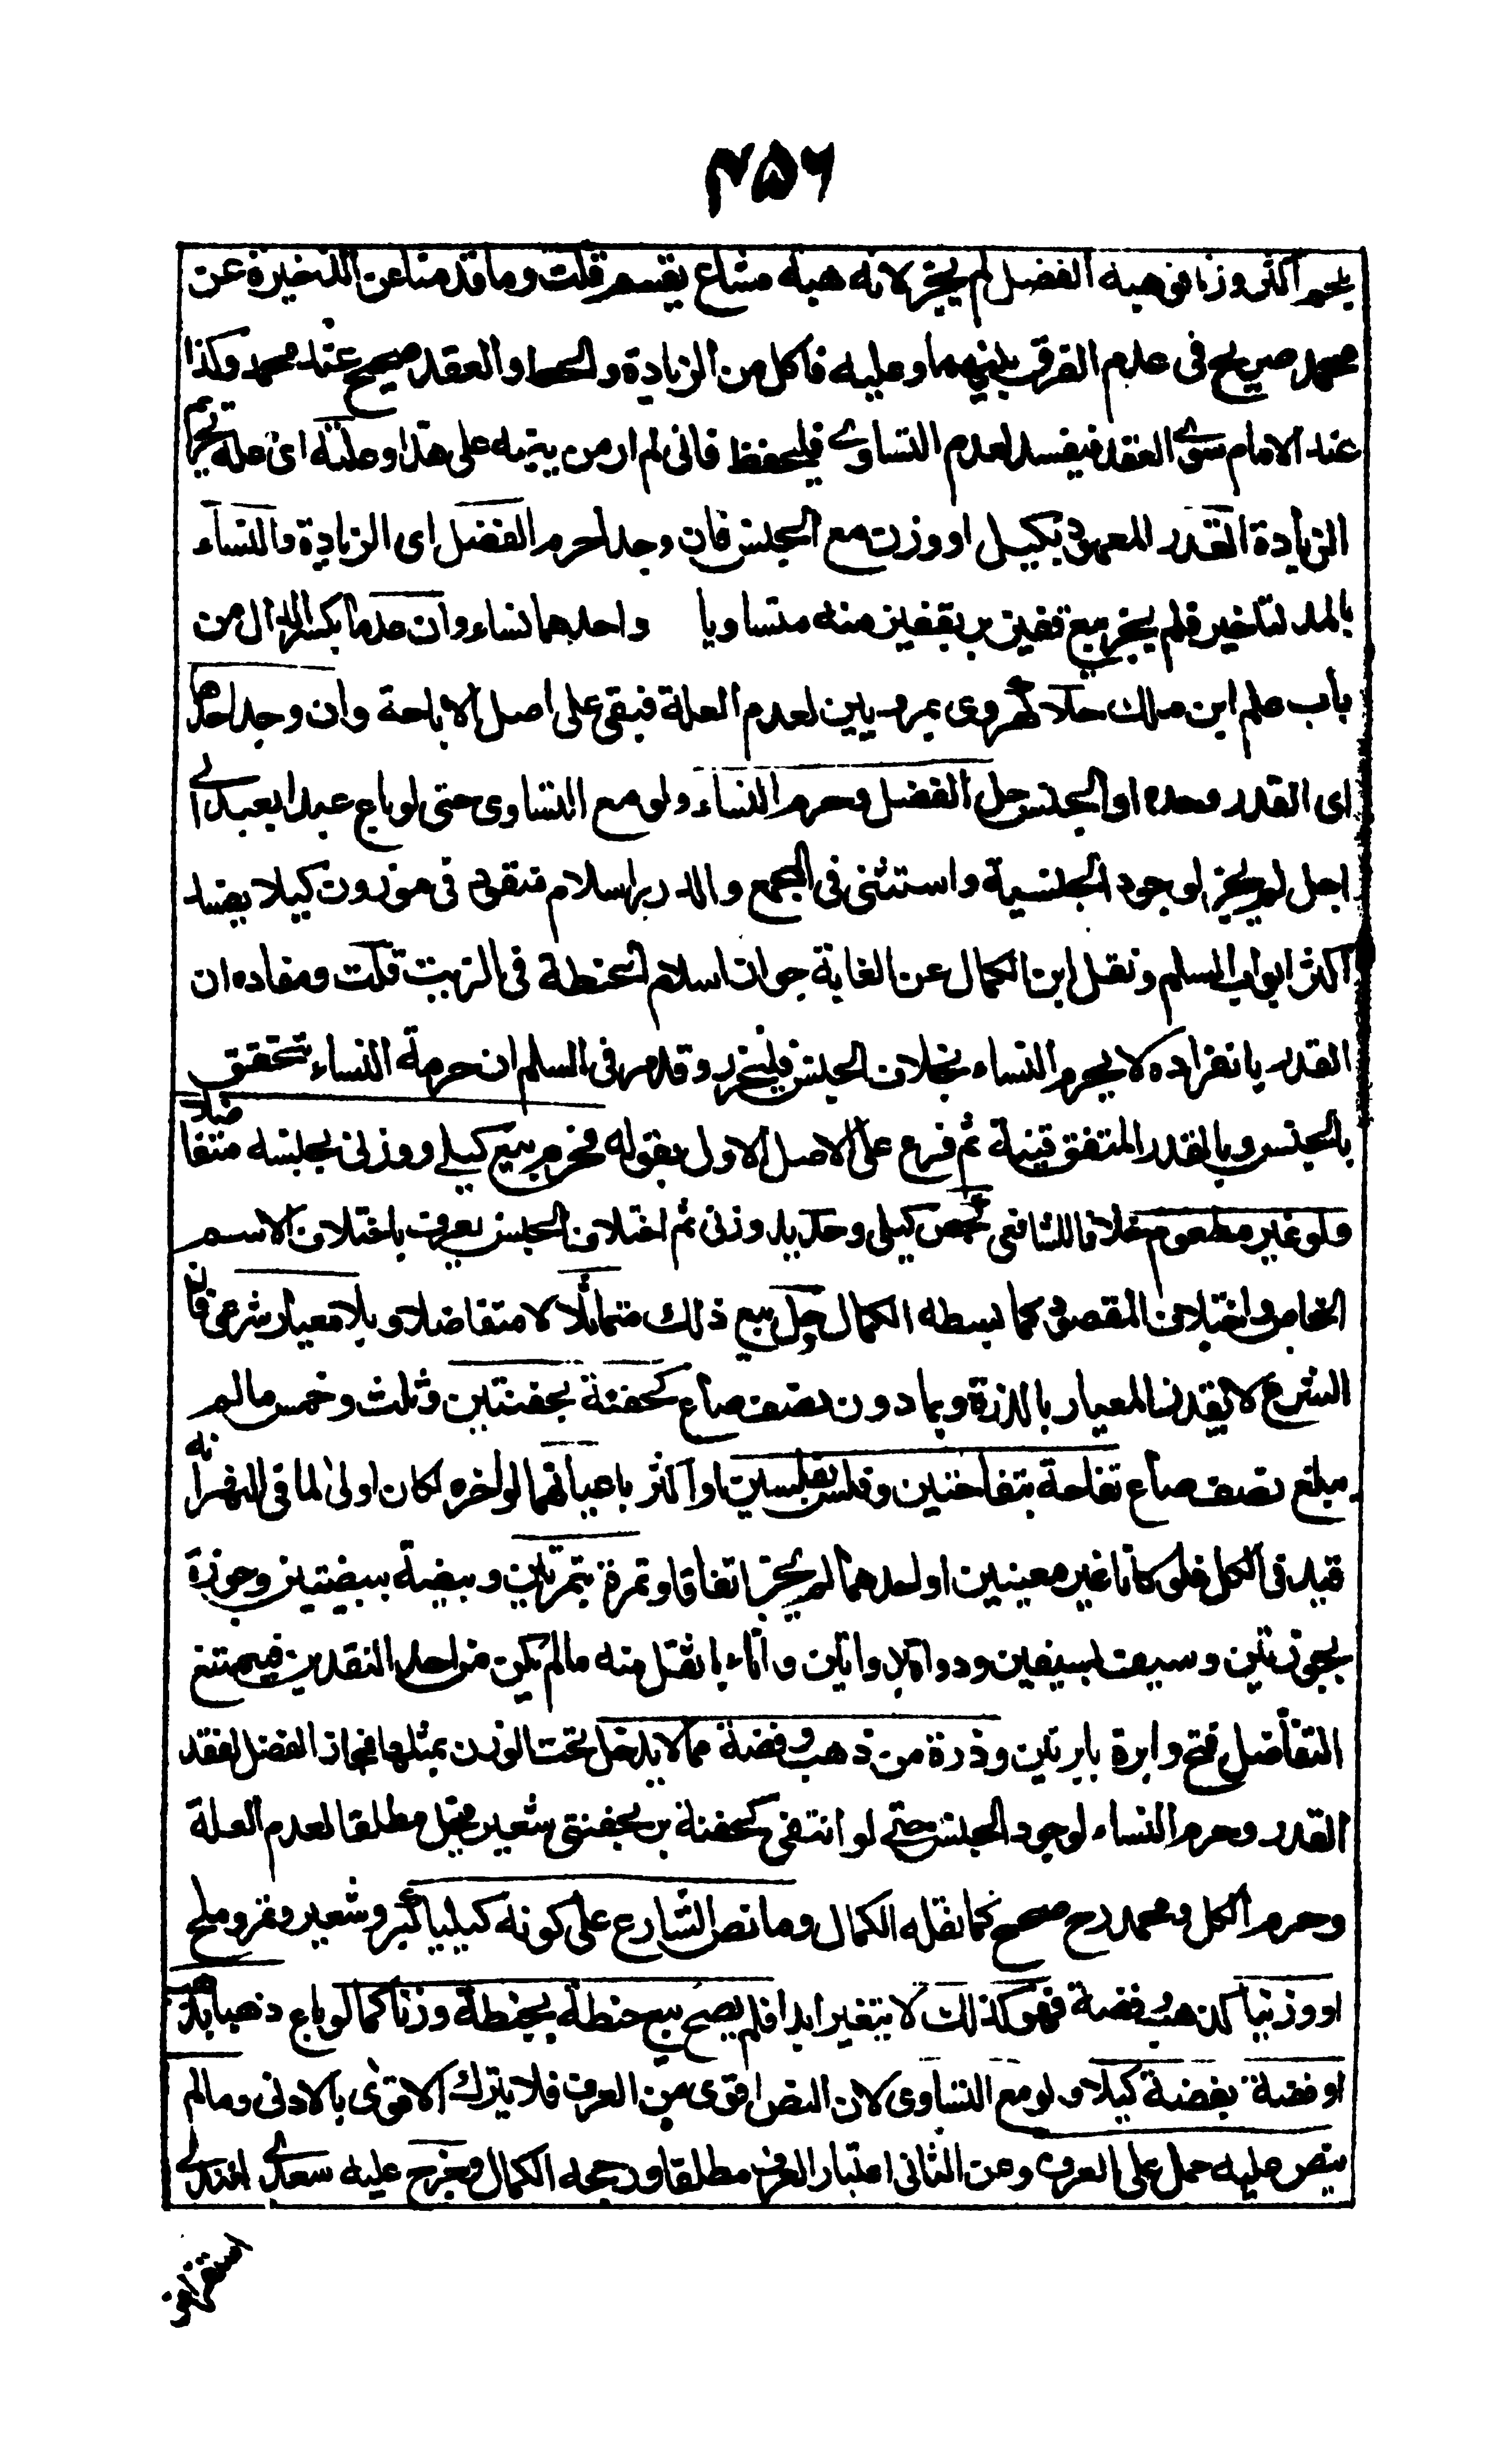 ۴۵۶
بلحم اكثر وزنا فوهبه الفضل لم يجز لانه هبة مشاع يقسم قلت وما قدمنا عن الذخيرة عن
محمد صريح فى عدم الفرق بينهما وعليه فالكل من الزيادة والحط والعقد صحيح عند محمد وكذا
عند الامام سوى العقد فيفسد لعدم التساوى فليحفظ فانى لم ار من ينبه على هذا وعلته اى علة تحريم
الزيادة القدر المعهود بكيل او وزن مع الجنس فان وجدا حرم الفضل اى الزيادة والنساء
بالمد لتاخير فلم يجز بيع قفيز بر بقفيز منه متساويا واحدهما نساء وان عدما بكسر الدال من
باب علم ابن ملك حلا كهروى بمرويين لعدم العلة فبقى على اصل الاباحة وان وجد احدهما
اى القدر وحده او الجنس حل الفضل وحرم النساء ولو مع التساوى حتى لو باع عبدا بعبد الى
اجل لم يجز لوجود الجنسية واستثنى فى المجمع والدرر اسلام منقود فى موزون كيلا يفسد
اكثر ابواب السلم ونقل ابن الكمال عن الغاية جواز اسلام الحنطة فى الزيت قلت ومفاده ان
القدر بانفراده لا يحرم النساء بخلاف الجنس فليحرر وقد مر فى السلم ان حرمة النساء تتحقق
بالجنس وبالقدر المتفق قنية ثم فرع على الاصل الاول بقوله فحرم بيع كيلى ووزنى بجنسه متفاضلا
ولو غير مطعوم خلافا للشافعى كجص كيلى وحديد وزنى ثم اختلاف الجنس يعرف باختلاف الاسم
الخاص واختلاف المقصود كما بسطه الكمال وحل بيع ذلك متماثلا لا متفاضلا وبلا معيار شرعى فان
الشرع لا يقدر المعيار بالذرة وبما دون نصف صاع كحفنة بحفنتين وثلث وخمس مالم
يبلغ نصف صاع تفاحة بتفاحتين وفلس بفلسين او اكثر باعيانهما لو اخره لكان اولى لما فى النهر انه
قيد فى الكل فلو كانا غير معينين او احدهما لم يجز اتفاقا وتمرة بتمرتين وبيضة ببيضتين وجوزة
بجوزتين وسيف بسيفين ودواة بدواتين واناء باثقل منه مالم يكن من احد النقدين فيمتنع
التفاضل فتح وابرة بابرتين وذرة من ذهب وفضة مما لا يدخل تحت الوزن بمثليها فجاز الفضل لفقد
القدر وحرم النساء لوجود الجنس حتى لو انتفى كحفنة بر بحفنتى شعير فيحل مطلقا لعدم العلة
وحرم الكل ومحمد رح صحح كما نقله الكمال وما نص الشارع على كونه كيليا كبر وشعير وتمر وملح
او وزنيا كذهب وفضة فهو كذلك لا يتغير ابدا فلم يصح بيع حنطة بحنطة وزنا كما لو باع ذهبا بذهب
او فضة بفضة كيلا ولو مع التساوى لان النص اقوى من العرف فلا يترك الاقوى بالادنى ومالم
ينص عليه حمل على العرف وعن الثانى اعتبار العرف مطلقا ورجحه الكمال وخرج عليه سعدى افندى